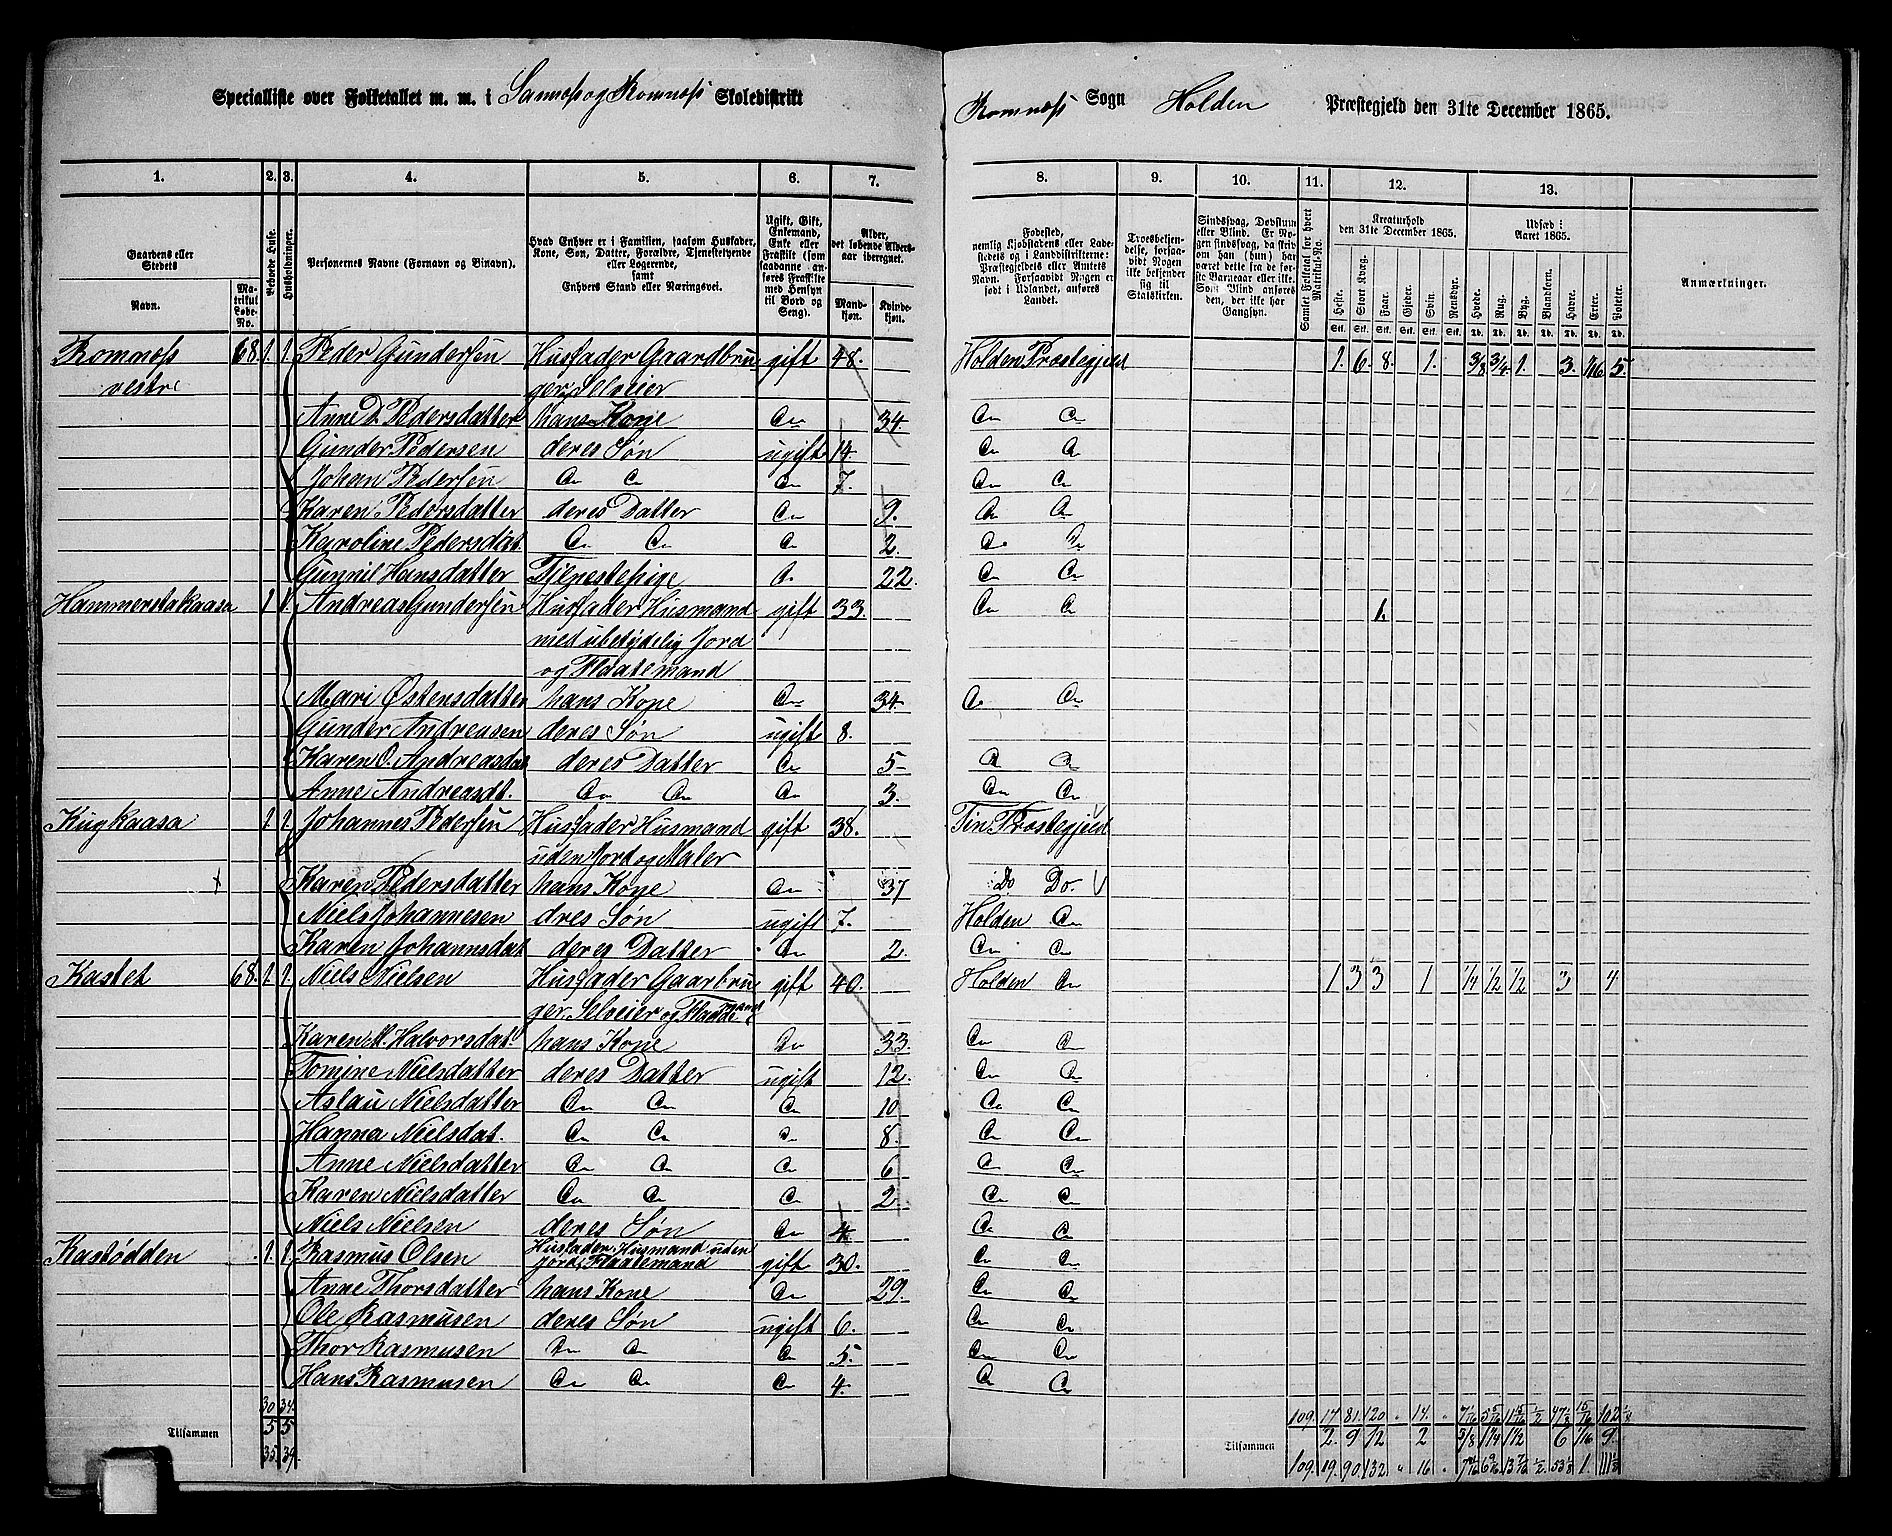 Specialliste over Folketallet m. m. i Sannes og Romnes Skoledistrikt
Romnes Sogn Holden Præstegjeld den 31te December 1865.
1. 2. 3. 4. 5. 6. 7. 8. 9. 10. 11. 12. 13.
Gaardens eller Stedets Navn. Matrikul Løbe-No. Beboede Huse. Husholdninger. Personernes Navne (Fornavn og Binavn). Hvad Enhver er i Familien, saasom Husfader, Kone, Søn, Datter, Forældre, Tjenestetyende eller Logerende, samt Enhvers Stand eller Næringsvei. Ugift, Gift, Enkemand, Enke eller Fraskilt (som saadanne anføres Fraskilte med Hensyn til Bord og Seng). Alder, det løbende Aldersaar iberegnet. Mandkjøn. Kvindekjøn.
Fødested, nemlig Kjøbstadens eller Ladestedets eller i Landdistrikterne: Præstegjeldets eller Amtets Navn. Forsaavidt Nogen er født i Udlandet, anføres Landet. Troesbekjendelse, forsaavidt Nogen ikke bekjender sig til Statskirken. Sindssvag, Døvstum eller Blind. Er Nogen sindssvag, da skriv om han (hun) har været dette fra de første Barneaar eller ikke. Som Blind anføres den, der ikke har Gangsyn. Samlet Folketal for hvert Matrikul-No. Kreaturhold den 31te December 1865. Heste. Stort Kvæg. Faar. Gjeder. Svin. Rensdyr. Udsæd i Aaret 1865. Hvede. Rug. Byg. Blandkorn. Havre. Erter. Poteter. Anmærkninger.
Romnes 68. 1. 1. Peder Gundersen Husfader Gaardbru gift 48. Holden Præstegjeld 1. 6. 8. 1. 3/8 3/4. 1. 3. 1/16 5.
vestre ger, Selveier
Anne D Pedersdatter hans Kone Do 34. Do Do
Gunder Pedersen deres Søn ugift 14 Do Do
Johan Pedersen Do Do Do 7. Do Do
Karen Pedersdatter deres Datter Do 9. Do Do
Karoline Pedersdat. Do Do Do 2. Do Do
Gunnil Hansdatter Tjenestepige Do 22. Do Do
Hammerstakaasa 1 1. Andreas Gundersen Husfader Husmand gift 33. Do Do 1.
med ubetydelig Jord
og Flaatemand
Mari Østensdatter hans Kone Do 34 Do Do
Gunder Andreasen deres Søn ugift 8.
Karen O. Andreasdat deres Datter Do 5 Do Do
Anne Andreasdt. Do Do Do 3. Do Do
Kugkaasa 1. 1. Johannes Pedersen Husfader Husmand gift 38. Tin Præstegjeld
uden Jord og Maler
Karen Pedersdatter hans Kone Do 37 Do Do.
Niels Johannesen dres Søn ugift 7. Holden Do
Karen Johannsdat deres Datter Do 2. Do Do
Kastet 68. 1. 1. Niels Nielsen Husfader Gaarbru gift 40. Holden Do 1 3 3 1 1/4 1/2 1/2 3 4
ger, Selveier og Flaatemand
Karen M. Halvorsdat. hans Kone Do 33. Do Do
Tomine Nielsdatter deres Datter ugift 12. Do Do
Aslau Nielsdatter Do Do Do 10 Do Do
Hanna Nielsdat. Do Do Do 8. Do Do
Anne Nielsdatter Do Do Do 6 Do Do
Karen Nielsdatter Do Do Do 2. Do Do
Niels Nielsen deres Søn Do 4. Do Do
Kastødden 1. 1. Rasmus Olsen Husfader, Husmand uden Jord, Flaatemand gift 30. Do Do
Anne Thorsdatter hans Kone Do 29. Do Do
Ole Rasmusen deres Søn ugift 6. Do Do
Thor Rasmusen Do Do Do 5. Do Do
Hans Rasmusen Do Do Do 4. Do Do
30 34. 109. 17. 81. 120 " 14. "
Tilsammen 5 5 Tilsammen 2. 9 12 2 5/8 1 1/4 1 1/2 6 1/16 9.
35. 39. 109. 19. 90. 132 " 16 "